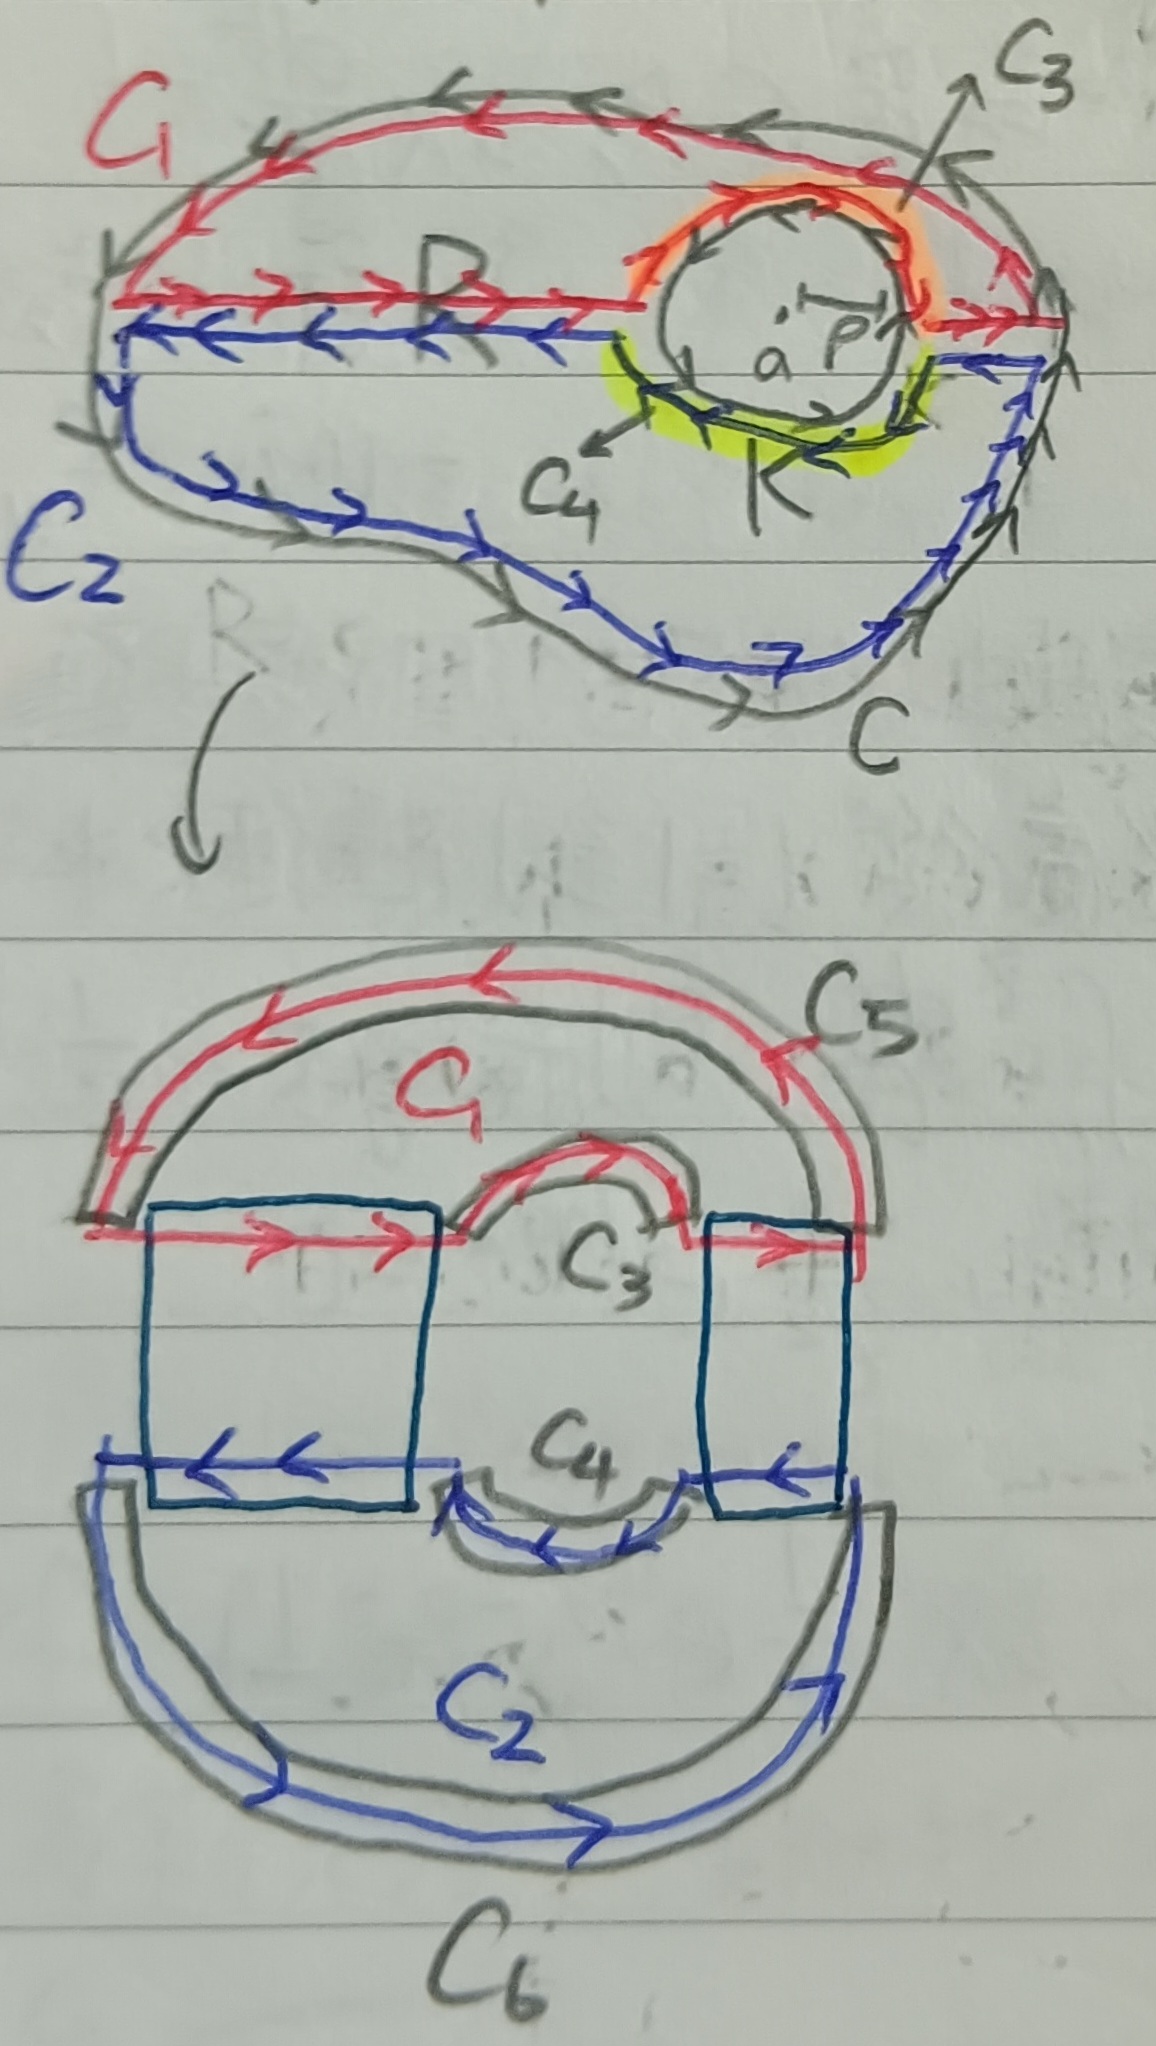 C3
C1
R
a
ρ
C4
K
C2
R
C
C5
C1
C3
C4
C2
C6